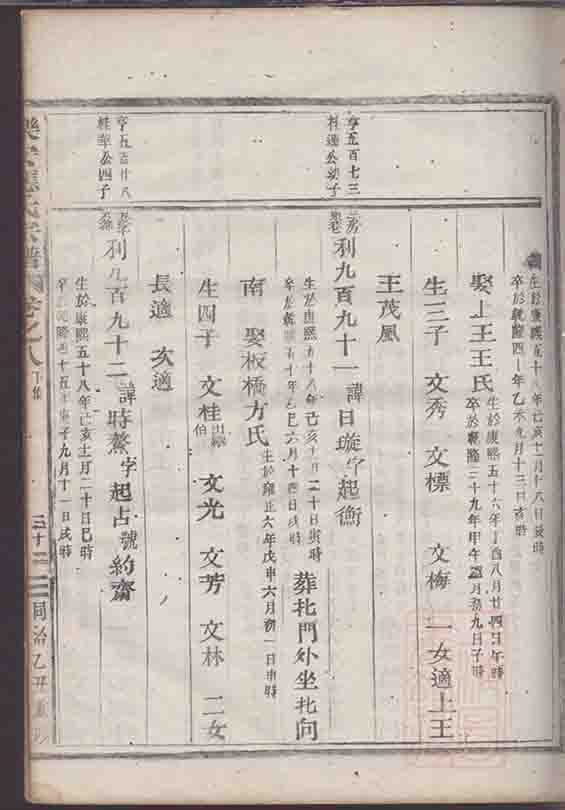 亨五百七三
桂 公幼子
生於康熙五十八年己亥十一月十八日 時
卒於乾隆四十年乙未九月十三日亥時
娶上王王氏
生於康熙五十六年丁酉八月廿四日午時
卒於乾隆三十九年甲午 月初九日子時
生三子 文秀 文標 文梅 一女適上王
王茂風
利九百九十一諱日璇字起衡
生於康熙五十八年己亥十月二十日寅時
卒於乾隆五十年乙巳六月十四日戌時
葬北門外坐北向
南 娶板橋方氏
生於雍正六年戊申六月初一日申時
生四子 文桂 出繼伯 文光 文芳 文林 二女
長適 次適
亨五百廿八
桂華公四子
利九百九十二諱時熬字起占號約齋
生於康熙五十八年己亥十月二十日巳時
卒於乾隆四十五年庚子九月十一日戌時
氏宗譜 卷之八 下集 三十二 同治乙丑重修